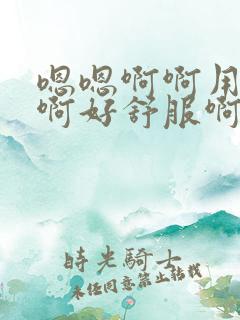 嗯嗯啊啊用
啊好舒服啊
時光騎士
未经同意禁止转载